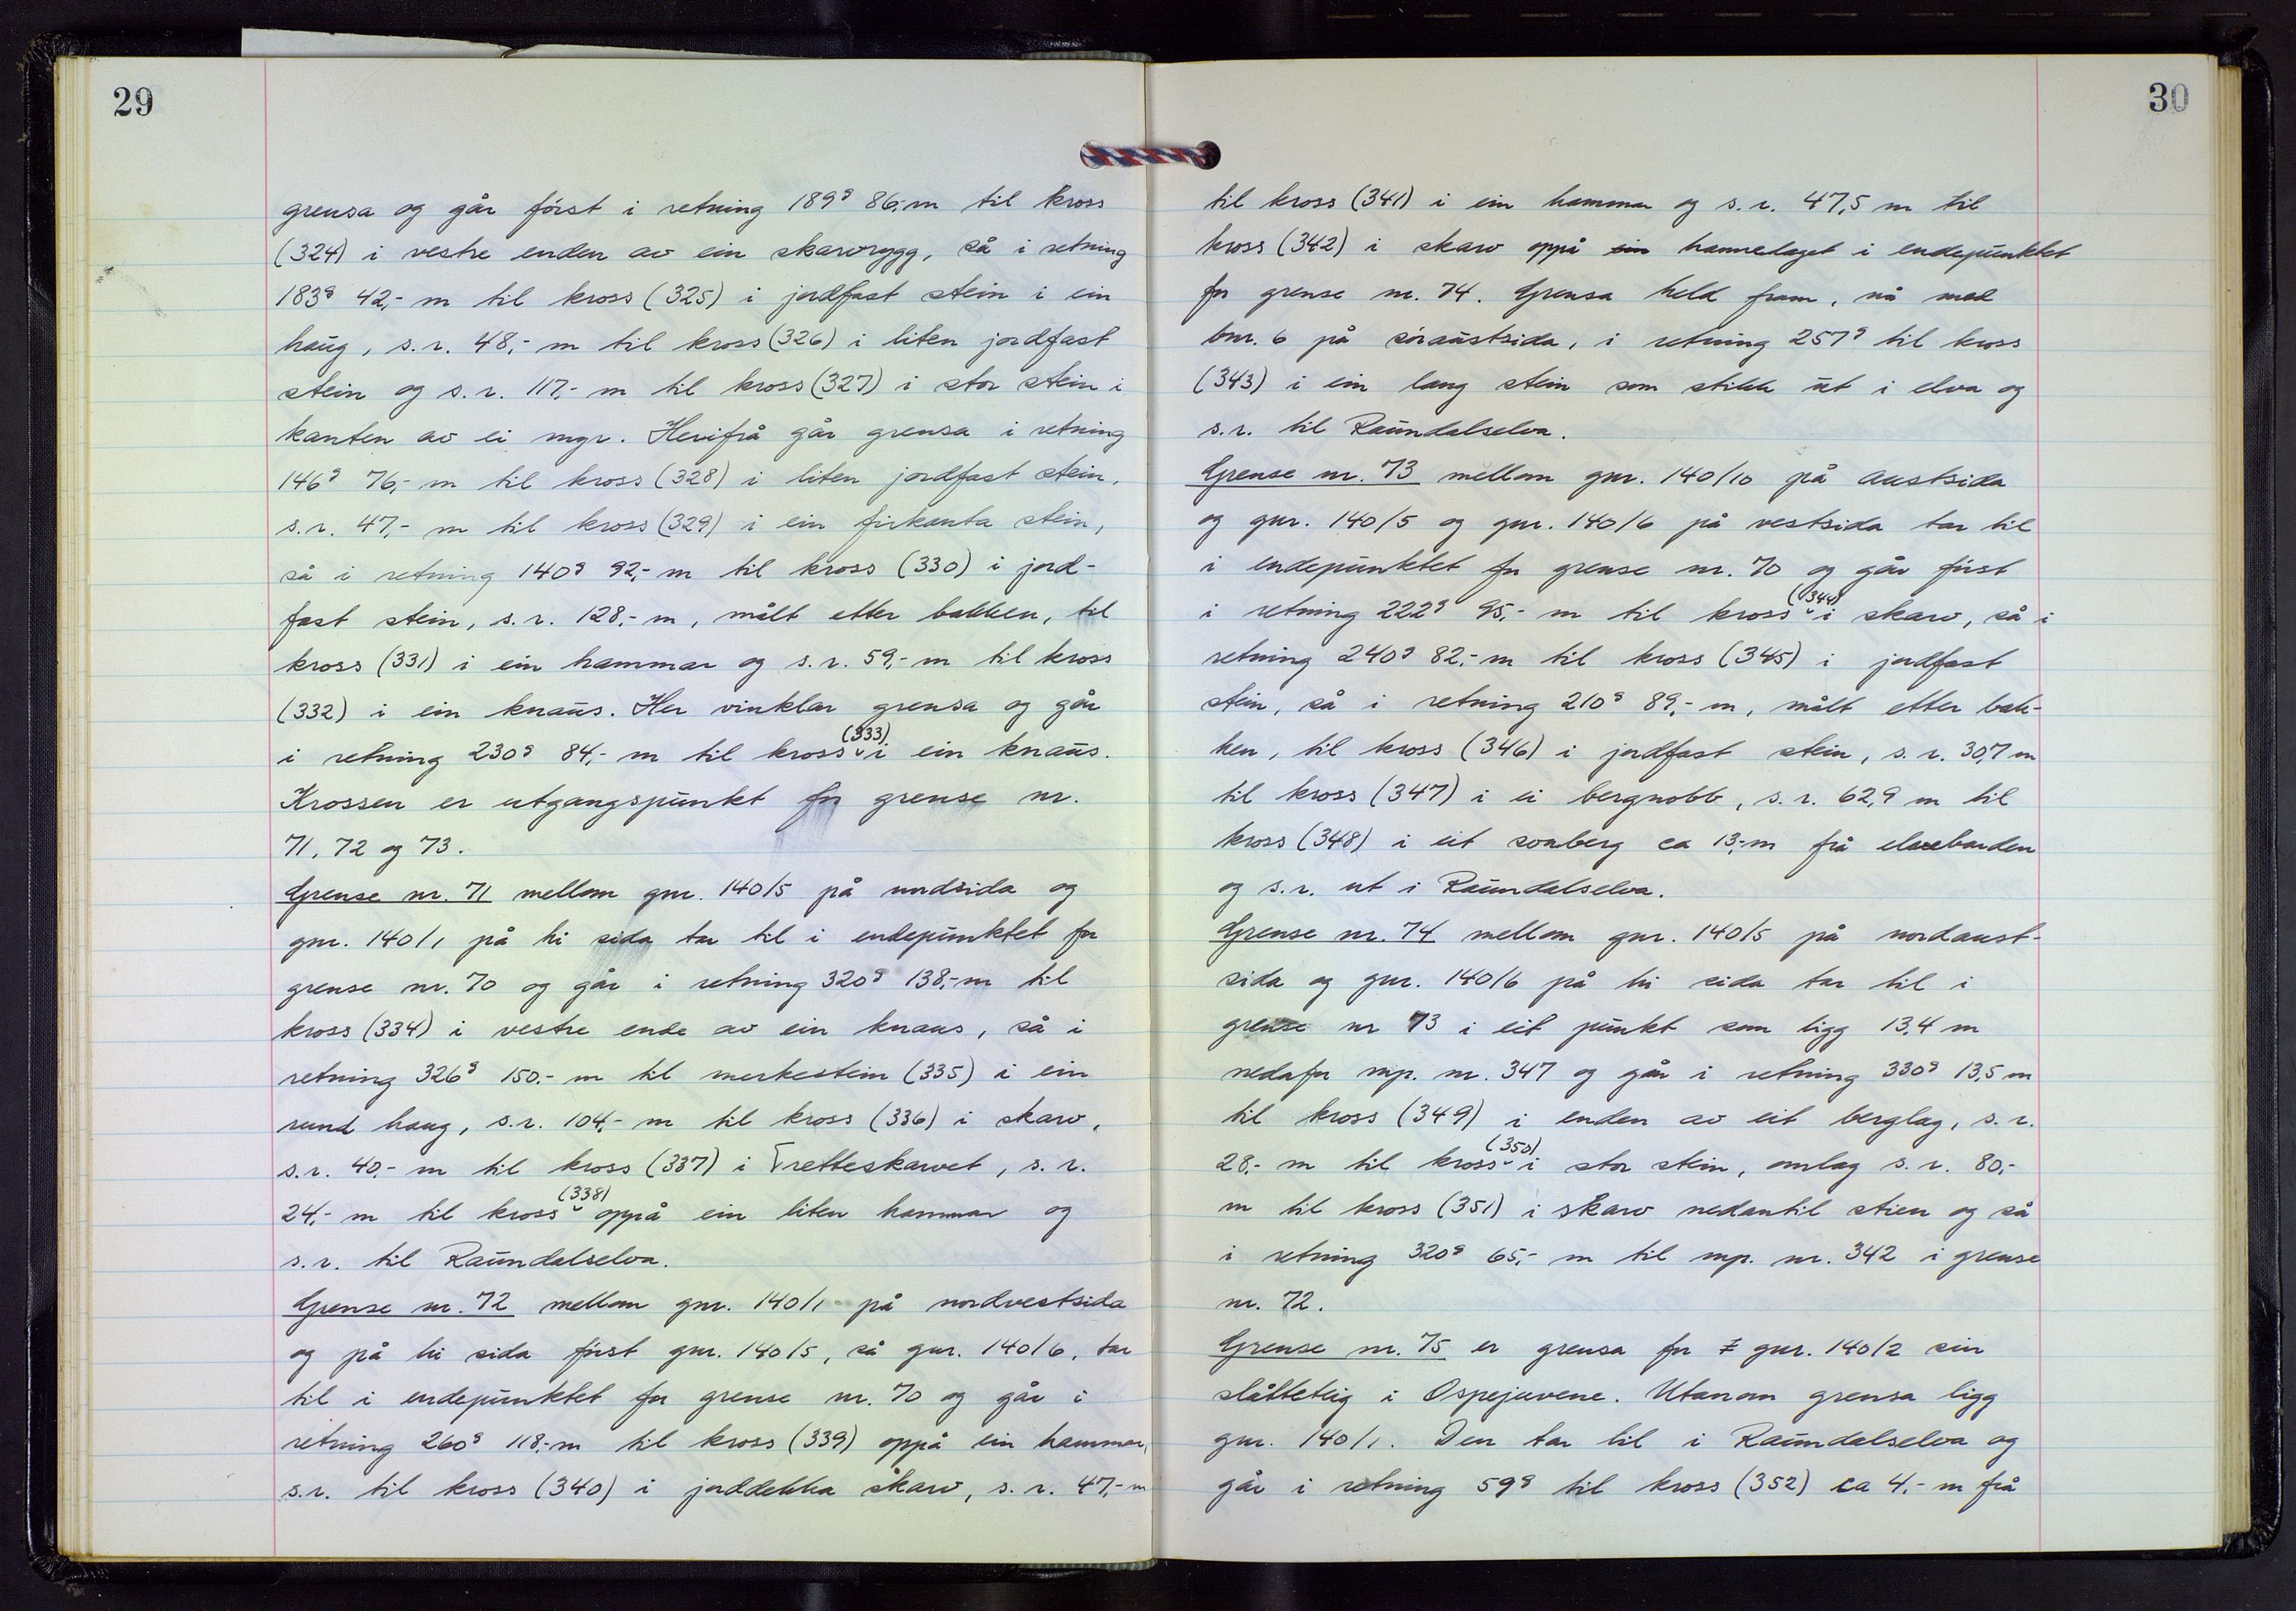 29
grensa og går først i retning 189g 86,-m til kross
(324) i vestre enden av ein skarvrygg, så i retning
183g 42,- m til kross (325) i jordfast stein i ein
haug, s.r. 48,- m til kross (326) i liten jordfast
stein og s.r. 117,- m til kross (327) i stor stein i
kanten av ei myr. Herifrå går grensa i retning
146g 76,- m til kross (328) i liten jordfast stein,
s.r. 47,- m til kross (329) i ein firkanta stein,
så i retning 140g 92,- m til kross (330) i jord-
fast stein, s.r. 128,- m, målt etter bakken, til
kross (331) i ein hammar og s.r. 59,- m til kross
(332) i ein knaus. Her vinklar grensa og går
i retning 230g 84,- m til kross (333) i ein knaus.
Krossen er utgangspunkt for grense nr.
71, 72 og 73.
Grense nr. 71 mellom gnr. 140/5 på nordsida og
gnr. 140/1 på hi sida tar til i endepunktet for
grense nr. 70 og går i retning 320g 138,-m til
kross (334) i vestre ende av ein knaus, så i
retning 326g 150,- m til merkestein (335) i ein
rund haug, s.r. 104,- m til kross (336) i skarv,
s.r. 40,- m til kross (337) i Tretteskarvet, s.r.
24,- m til kross (338) oppå ein liten hammar og
s.r. til Raundalselva.
Grense nr. 72 mellom gnr. 140/1 på nordvestsida
og på hi sida først gnr. 140/5, så gnr. 140/6, tar
til i endepunktet for grense nr. 70 og går i
retning 260g 118,-m til kross (339) oppå ein hammar,
s.r. til kross (340) i jorddekka skarv, s.r. 47,- m
30
til kross (341) i ein hammar og s.r. 47,5 m til
kross (342) i skarv oppå ein hamrelaget i endepunktet
for grense nr. 74. Grensa held fram, nå med
bnr. 6 på søraustsida, i retning 257g til kross
(343) i ein lang stein som stikk ut i elva og
s.r. til Raundalselva.
Grense nr. 73 mellom gnr. 140/10 på austsida
og gnr. 140/5 og gnr. 140/6 på vestsida tar til
i endepunktet for grense nr. 70 og går først
i retning 222g 95,- m til kross (344) i skarv, så i
retning 240g 82,- m til kross (345) i jordfast
stein, så i retning 210g 89,- m, målt etter bak-
ken, til kross (346) i jordfast stein, s.r. 30,7 m
til kross (347) i ei bergnobb, s.r. 62,9 m til
kross (348) i eit svaberg ca 13,-m frå elvebarden
og s.r. ut i Raundalselva.
Grense nr. 74 mellom gnr. 140/5 på nordaust-
sida og gnr. 140/6 på hi sida tar til i
grense nr 73 i eit punkt som ligg 13,4 m
nedafor mp. nr. 347 og går i retning 330g 13,5 m
til kross (349) i enden av eit berglag, s.r.
28,- m til kross (350) i stor stein, omlag s.r. 80,-
m til kross (351) i skarv nedantil stien og så
i retning 320g 65,- m til mp. nr. 342 i grense
nr. 72.
Grense nr. 75 er grensa for gnr. 140/2 sin
slåtteteig i Ospejuvene. Utanom grensa ligg
gnr. 140/1. Den tar til i Raundalselva og
går i retning 59g til kross (352) ca 4,- m frå